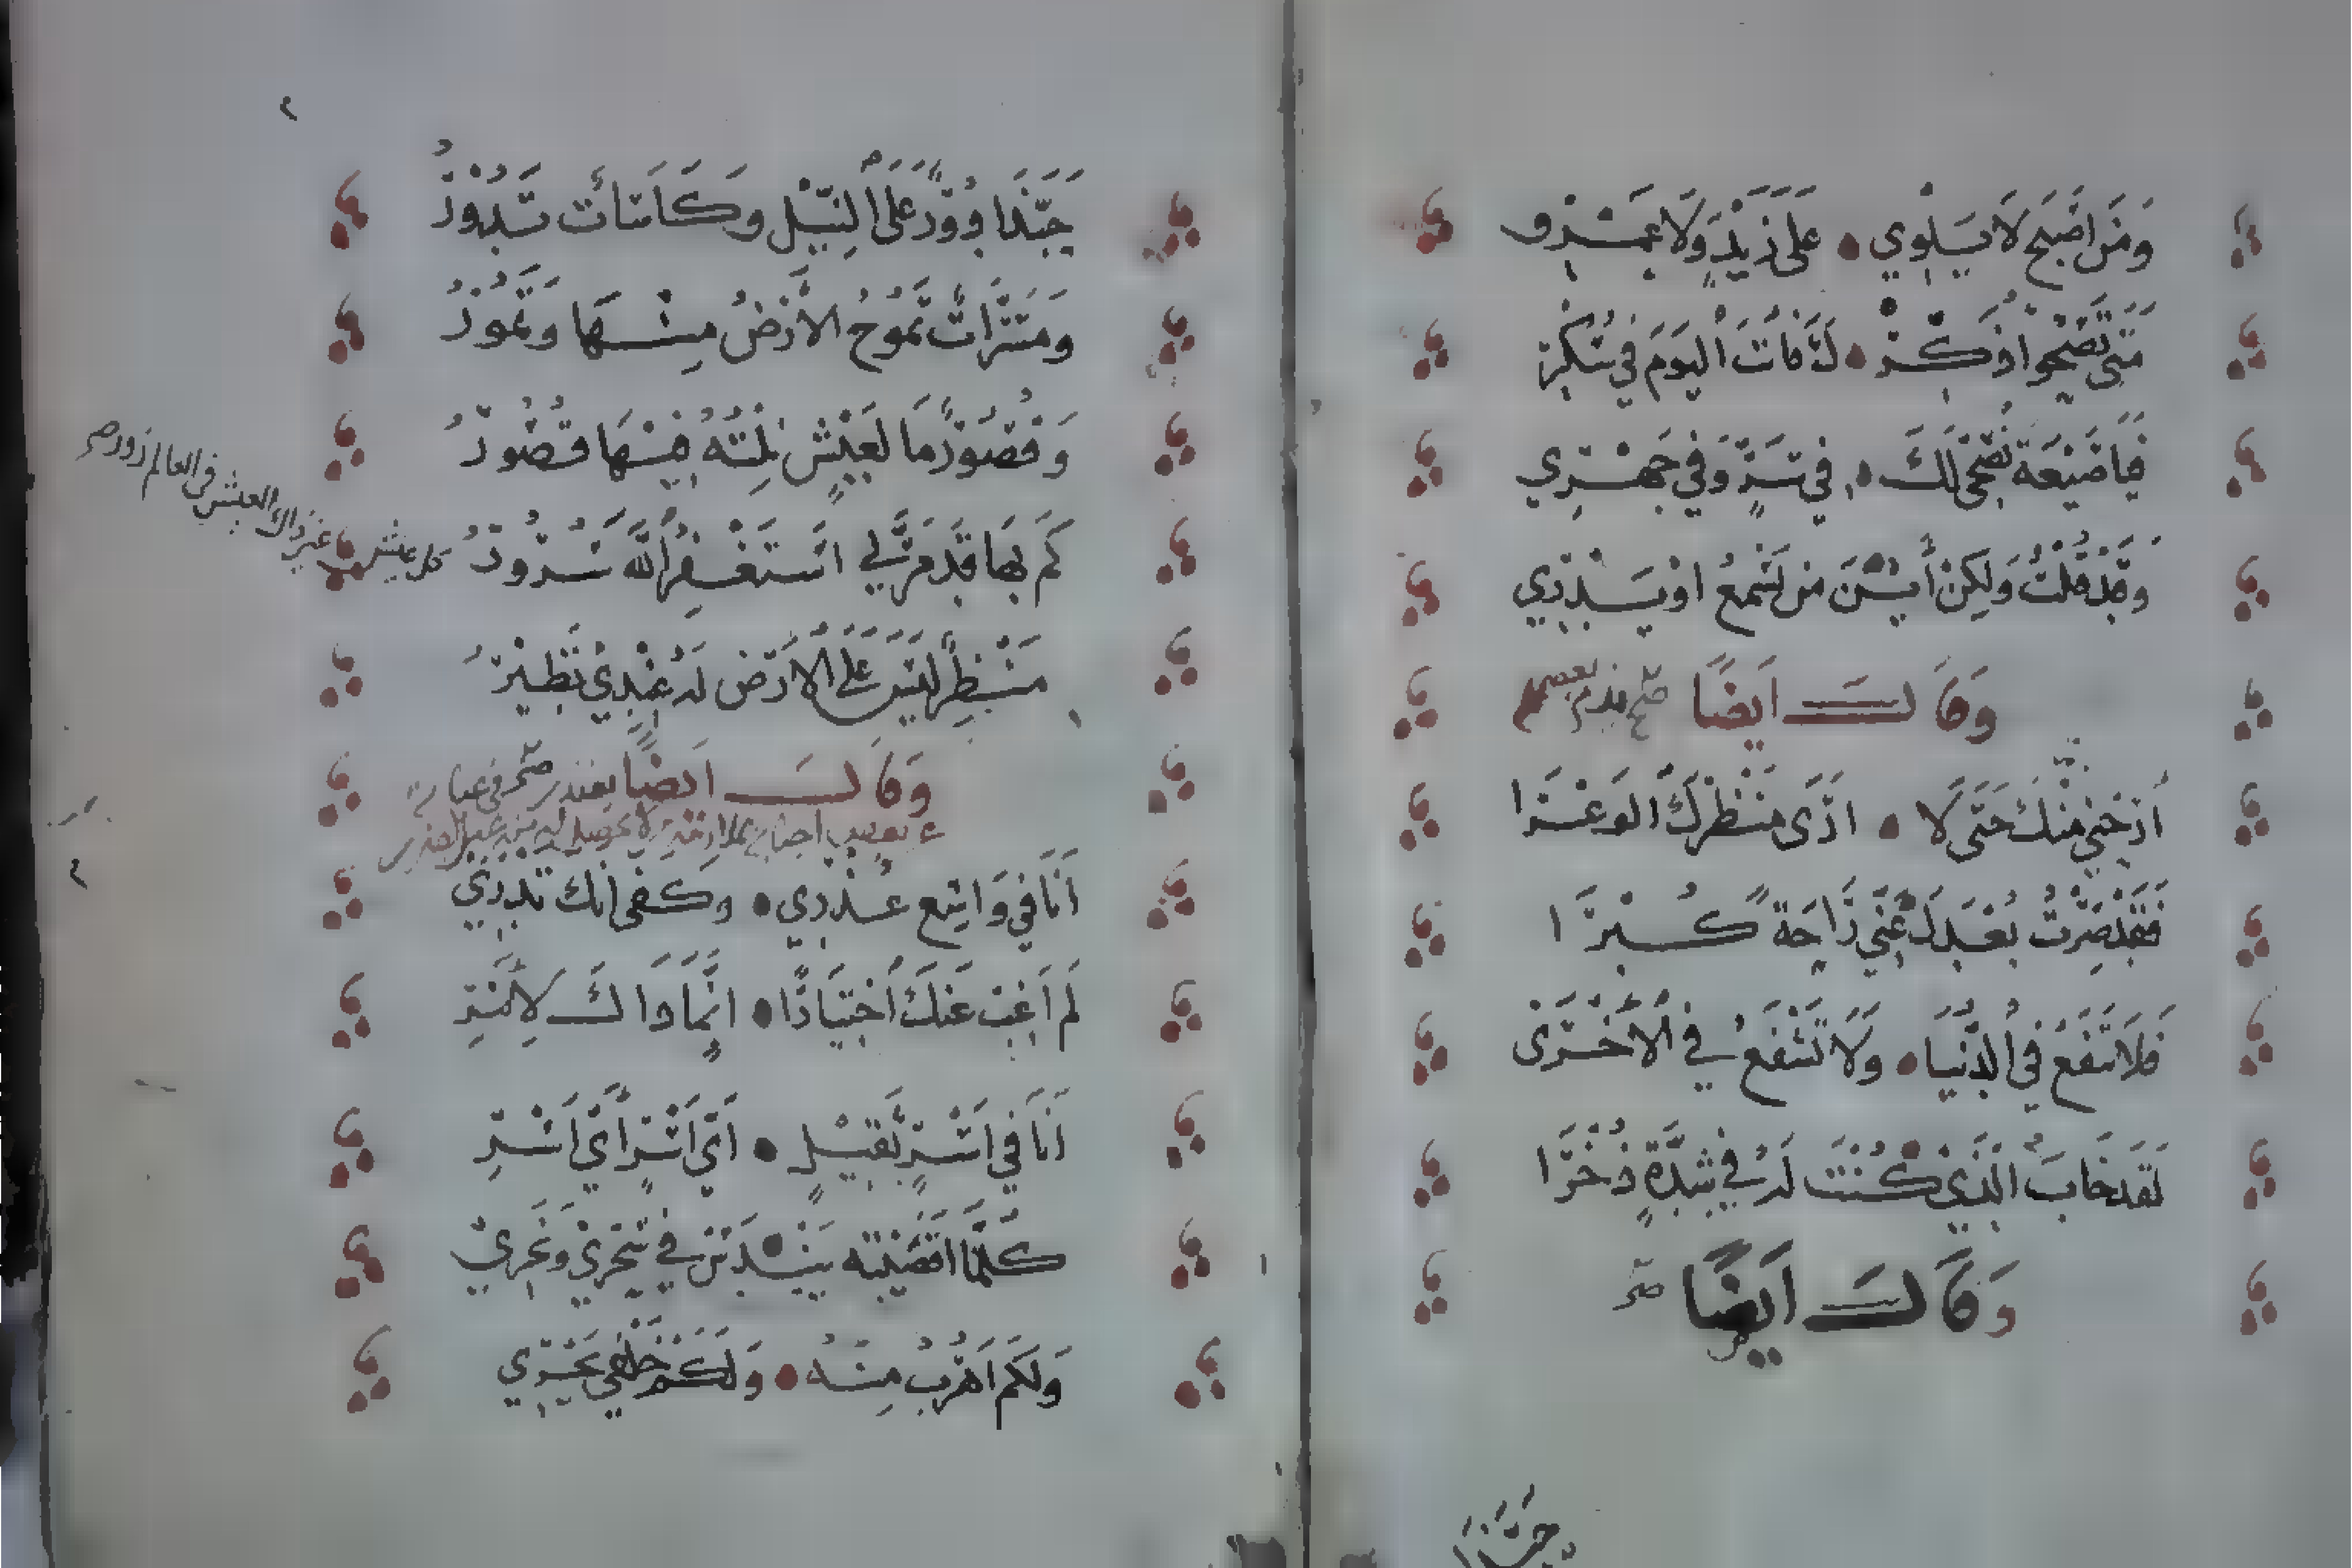 وَمَن اَصْبَح لَا يَلْوِي • عَلَى زَيْدٍ وَلَا عَمْرٍو
مَتَى تَصْحُو اذْكُر • لَكَ فَاتَ اليَوْمَ فِي سُكْرِ
فَيَا ضَيْعَةَ نُصْحِى لَكَ • فِي سِرٍّ وَفِي جَهْرِي
وَقَدْ قُلْتُ وَلَكِنْ أَيْنَ مَن يَسْمَعُ اوْ يَدْرِي
وَقَالَ اَيضًا
أَرِحْنِي مِنْكَ حَتَّى لَا • ارَى مَنْظَرَكَ الوَعْرَا
فَقَدْ صِرْتُ بُعْدَكَ عَنِّي رَاحَةً كُبْرَا
فَلَا تَنْفَعُ فِي الدُّنْيَا • وَلَا تَنْفَعُ فِي الْأُخْرَى
لَقَد خَابَ الَّذِيْ كُنْتَ لَهُ فِي شِدَّةٍ ذُخْرَا
وَقَالَ اَيضًا
حَبَّذَا
حَبَّذَا دُوْرٌ عَلَى النِّيْلِ وَكَاسَاتٌ تَدُوْرُ
وَمَسَرَّاتٌ تَمُوْجُ الأَرْضُ مِنْهَا وَتَمُوْرُ
وَقُصُوْرٌ مَا لَعَيْشٍ نِلْتُهُ فِيْهَا قُصُوْرُ
كَمْ بِهَا قَدْ مَرَّ لِي اَسْتَغْفِرُ اللَّهَ سُرُوْرُ
كل عيش غير ذاك العيش فى العالم زور
مَنْظَرٌ لَيْسَ عَلَى الاَرْضِ لَهُ عِنْدِيْ نَظِيْرُ
وَقَالَ ايضًا
اَنَا فِي وَاسِعِ عُذْرِي • وَكَفَى انَّكَ تَدْرِي
لَم اَغِبْ عَنْكَ اخْتِيَارًا • انَّمَا ذَاكَ لِأَمْرِ
اَنَا فِي اَسْرِ ثَقِيْلٍ • اَيِّ اَسْرٍ اَيِّ اَسْرِ
كُلَّمَا اَفْضَيْتُهُ يَنْبُتُ فِي سَحْرِيْ وَنَحْرِيْ
وَلَكَم اَهْرُبُ مِنْهُ • وَلَكَمْ خَلْفِي يَجْرِي